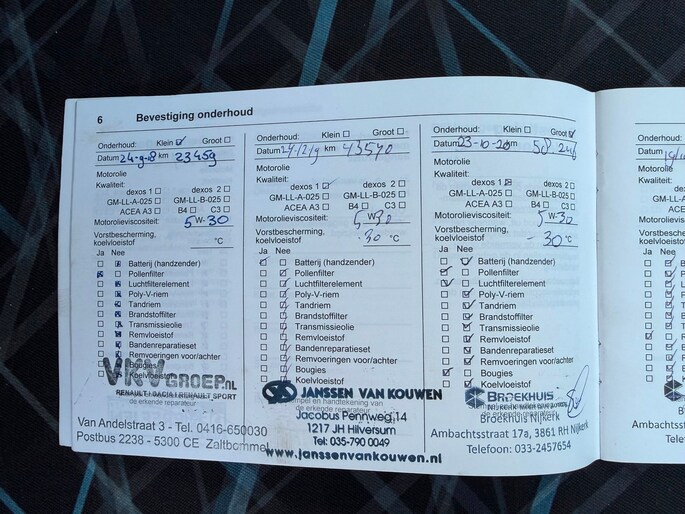 6 Bevestiging onderhoud
Onderhoud: Klein Groot
Datum 24-9-18 km 23459
Motorolie
Kwaliteit:
dexos 1 dexos 2
GM-LL-A-025 GM-LL-B-025
ACEA A3 B4 C3
Motorolieviscositeit: 5W-30
Vorstbescherming,
koelvloeistof °C
Ja Nee
Batterij (handzender)
Pollenfilter
Luchtfilterelement
Poly-V-riem
Tandriem
Brandstoffilter
Transmissieolie
Remvloeistof
Bandenreparatieset
Remvoeringen voor/achter
Bougies
Koelvloeistof
VKVGROEP.nl
RENAULT | DACIA | RENAULT SPORT
de erkende reparateur
Van Andelstraat 3 - Tel. 0416-650030
Postbus 2238 - 5300 CE Zaltbommel
Onderhoud: Klein Groot
Datum km 43570
Motorolie
Kwaliteit:
dexos 1 dexos 2
GM-LL-A-025 GM-LL-B-025
ACEA A3 B4 C3
Motorolieviscositeit: 5W30
Vorstbescherming,
koelvloeistof -30 °C
Ja Nee
Batterij (handzender)
Pollenfilter
Luchtfilterelement
Poly-V-riem
Tandriem
Brandstoffilter
Transmissieolie
Remvloeistof
Bandenreparatieset
Remvoeringen voor/achter
Bougies
Koelvloeistof
JANSSEN VAN KOUWEN
de erkende reparateur
Jacobus Pennweg 14
1217 JH Hilversum
Tel: 035-790 0049
www.janssenvankouwen.nl
Onderhoud: Klein Groot
Datum 23-10-20 km
Motorolie
Kwaliteit:
dexos 1 dexos 2
GM-LL-A-025 GM-LL-B-025
ACEA A3 B4 C3
Motorolieviscositeit: 5W-30
Vorstbescherming,
koelvloeistof -30 °C
Ja Nee
Batterij (handzender)
Pollenfilter
Luchtfilterelement
Poly-V-riem
Tandriem
Brandstoffilter
Transmissieolie
Remvloeistof
Bandenreparatieset
Remvoeringen voor/achter
Bougies
Koelvloeistof
BROEKHUIS
Broekhuis Nijkerk
Ambachtsstraat 17a, 3861 RH Nijkerk
Telefoon: 033-2457654